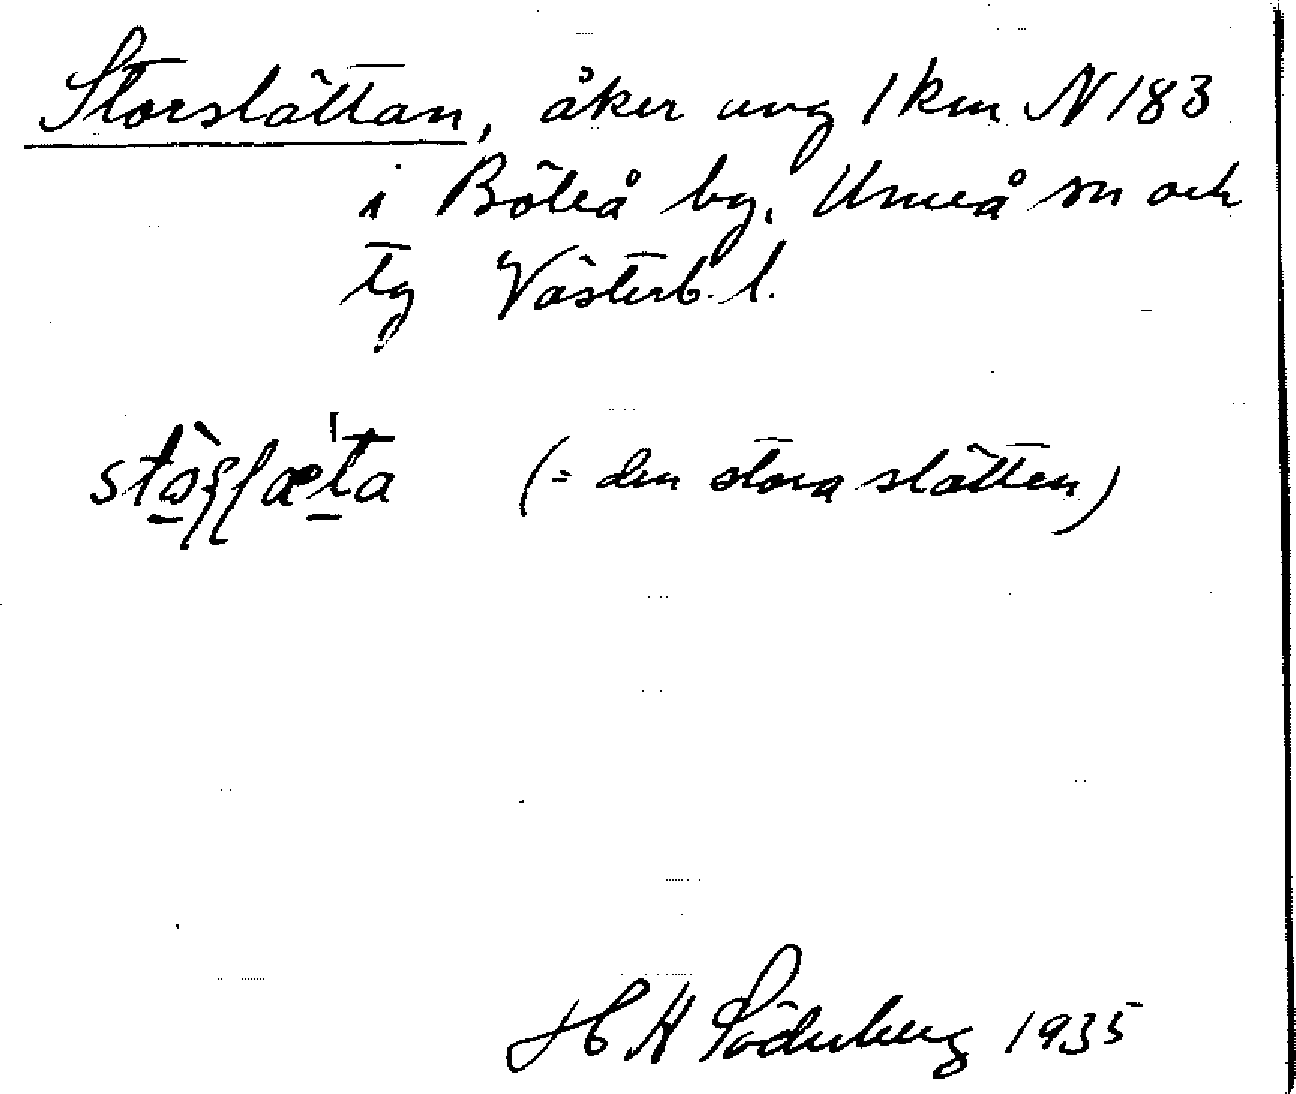 Storslättan, åker ung 1 km N 183
i Böleå by, Umeå sn och
tg Västerb. l.
(= den stora slätten)
H H Söderberg 1935